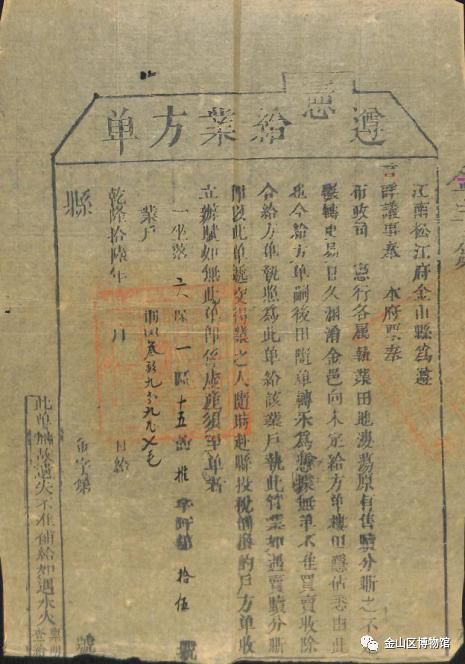 遵憲給業方单
江南松江府金山縣爲遵
旨詳議事奉 本府票奉
布政司 憲行各属執業田地漊蕩原有售贖分晰之不
轉史易日久淆金邑向未定給方单樓田隱佔悉由此
也今給方单嗣後田隨单轉永爲憑據無单不准買賣收除
合給方单執照爲此单給該業戶執此管業如遇賣贖分晰
即以此单遞交得業之人隨時赴縣投稅的戶方单收
立辦賦如無此单即係虛産須至单者
一坐落 保 一 區 十五 推 字圩第 拾伍 號
業戶
乾隆拾陸年 月 日給
縣
字第 號
此单倘故遺失不准補給如遇水火
金山区博物馆